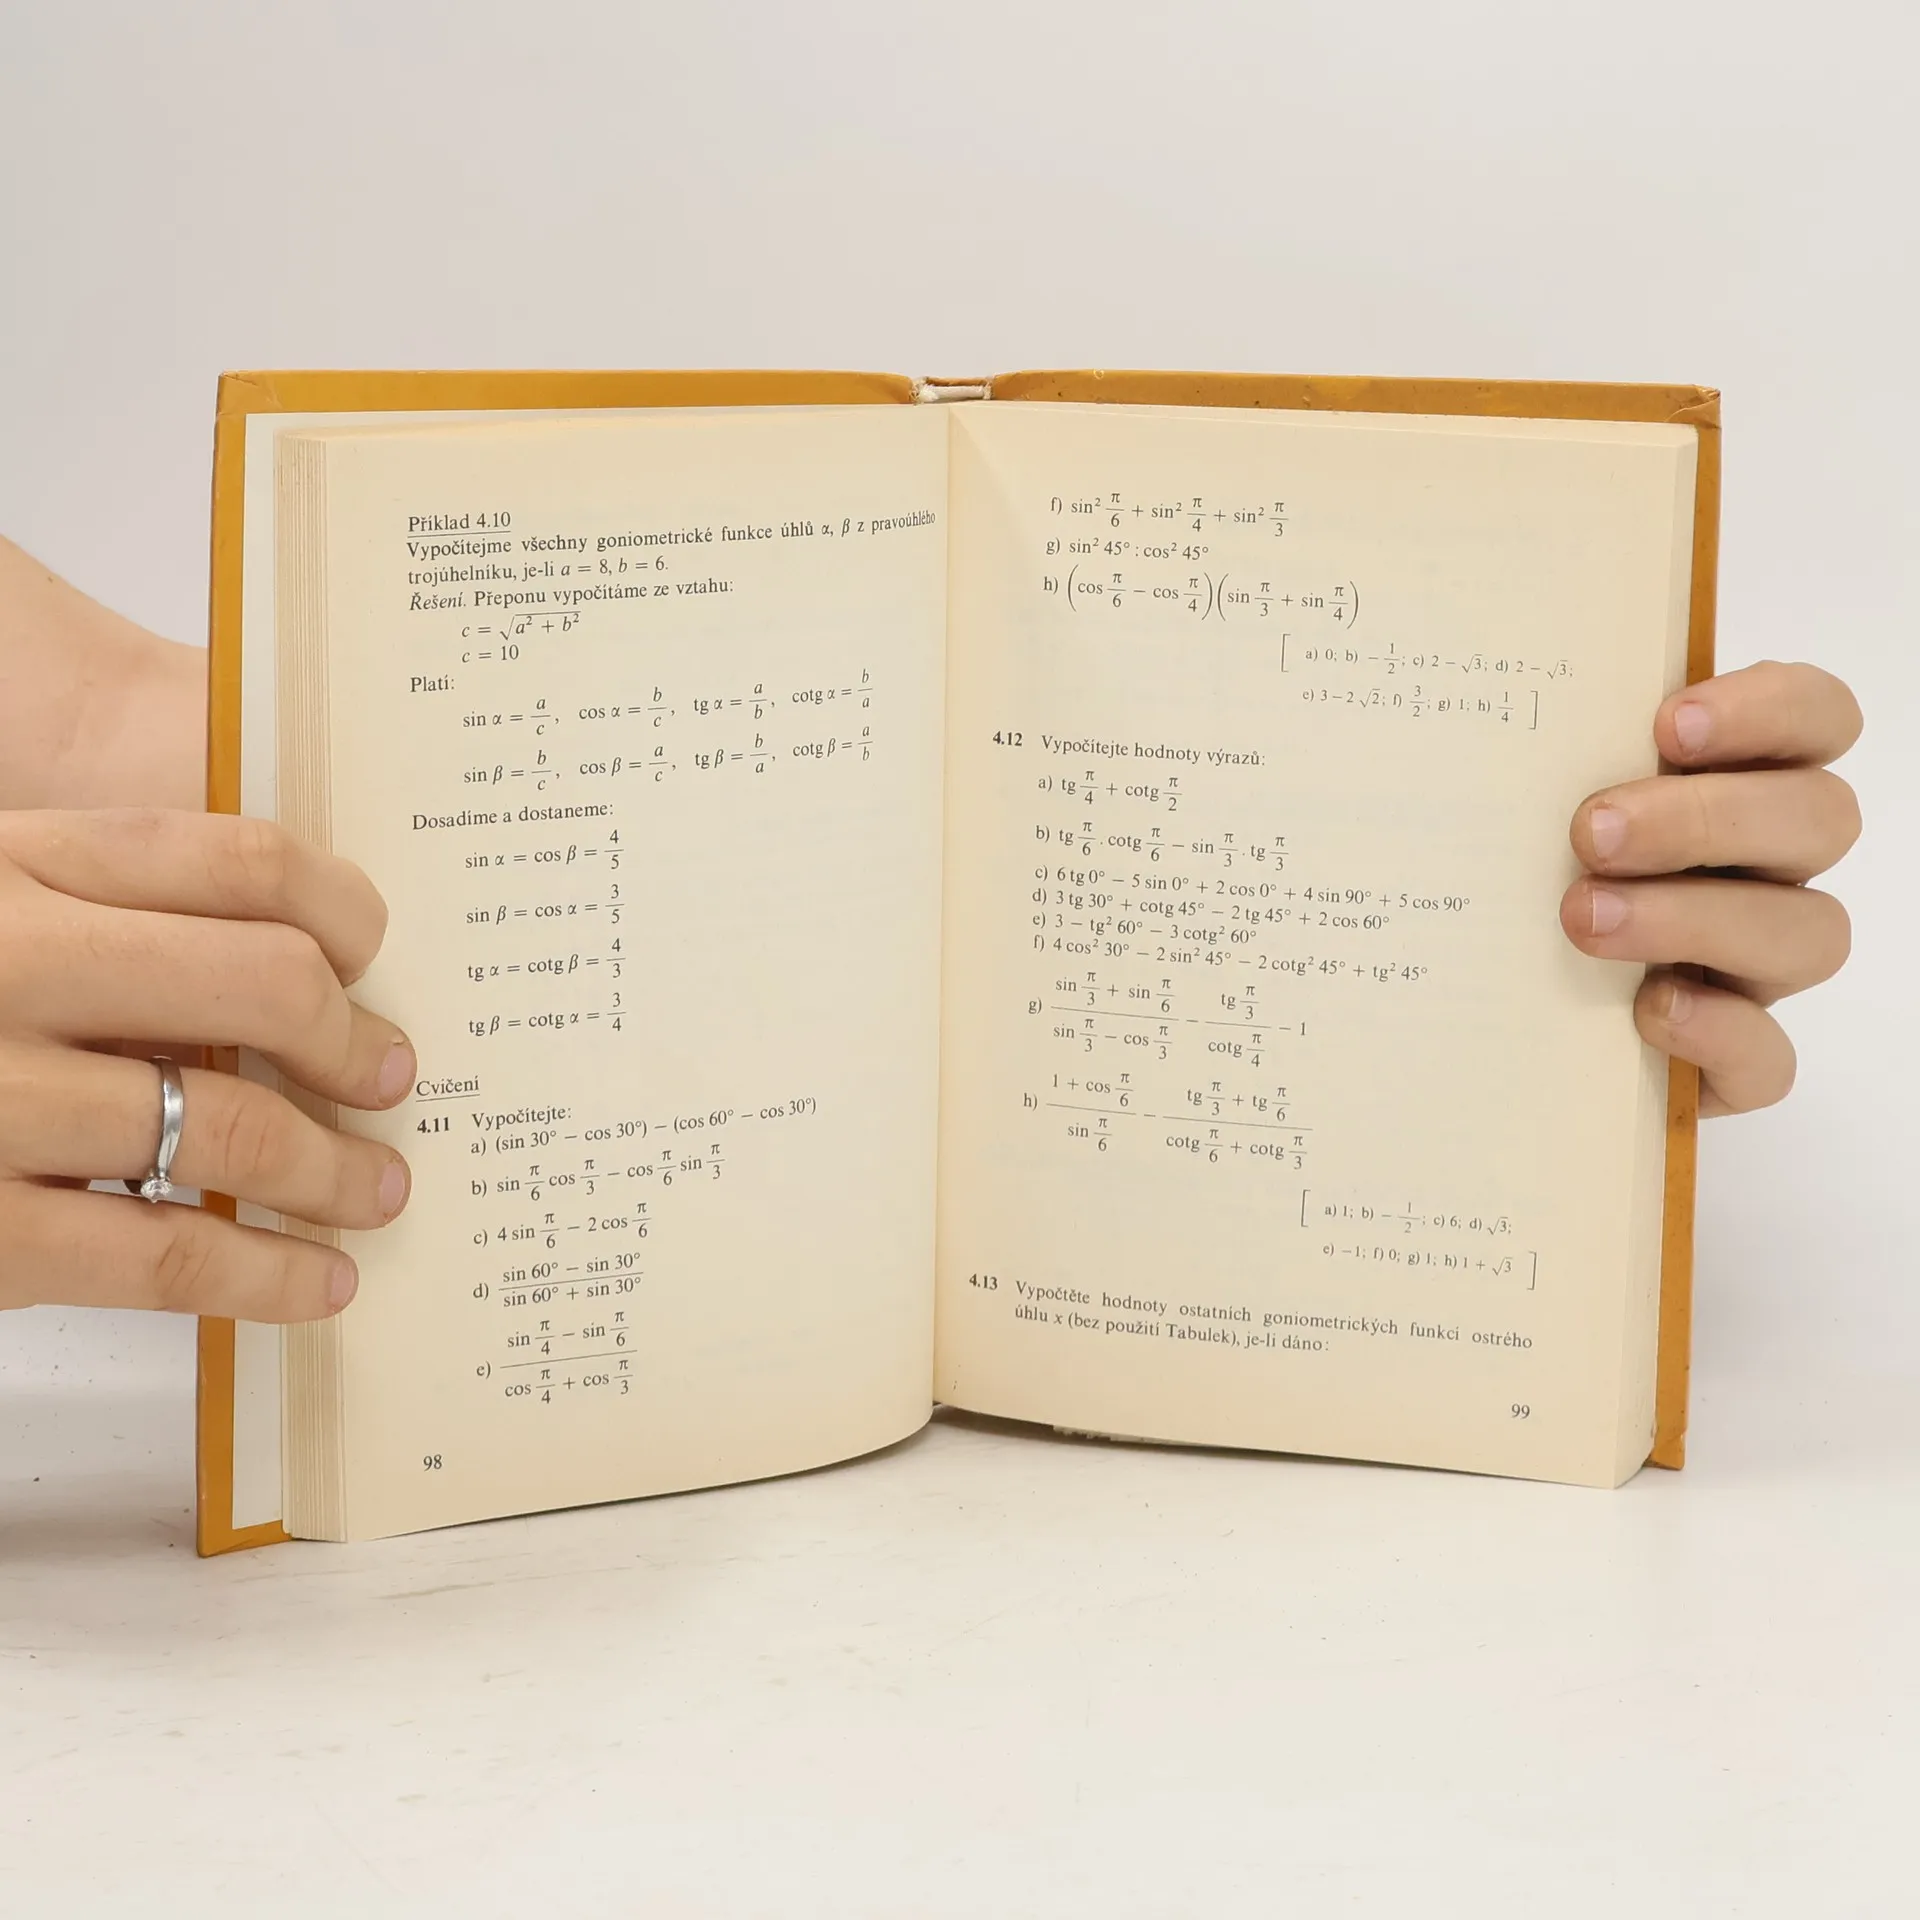 Příklad 4.10
Vypočítejme všechny goniometrické funkce úhlů α, β z pravoúhlého
trojúhelníku, je-li a = 8, b = 6.
Řešení. Přeponu vypočítáme ze vztahu:
c = √(a² + b²)
c = 10
Platí:
sin α = a/c, cos α = b/c, tg α = a/b, cotg α = b/a
sin β = b/c, cos β = a/c, tg β = b/a, cotg β = a/b
Dosadíme a dostaneme:
sin α = cos β = 4/5
sin β = cos α = 3/5
tg α = cotg β = 4/3
tg β = cotg α = 3/4
Cvičení
4.11 Vypočítejte:
a) (sin 30° − cos 30°) − (cos 60° − cos 30°)
b) sin π/6 cos π/3 − cos π/6 sin π/3
c) 4 sin π/6 − 2 cos π/6
d) (sin 60° − sin 30°)/(sin 60° + sin 30°)
e) (sin π/4 − sin π/6)/(cos π/4 + cos π/3)
98
f) sin² π/6 + sin² π/4 + sin² π/3
g) sin² 45° : cos² 45°
h) (cos π/6 − cos π/4)(sin π/3 + sin π/4)
[ a) 0; b) −1/2; c) 2 − √3; d) 2 − √3;
e) 3 − 2 √2; f) 3/2; g) 1; h) 1/4 ]
4.12 Vypočítejte hodnoty výrazů:
a) tg π/4 + cotg π/2
b) tg π/6 . cotg π/6 − sin π/3 . tg π/3
c) 6 tg 0° − 5 sin 0° + 2 cos 0° + 4 sin 90° + 5 cos 90°
d) 3 tg 30° + cotg 45° − 2 tg 45° + 2 cos 60°
e) 3 − tg² 60° − 3 cotg² 60°
f) 4 cos² 30° − 2 sin² 45° − 2 cotg² 45° + tg² 45°
g) (sin π/3 + sin π/6)/(sin π/3 − cos π/3) − (tg π/3)/(cotg π/4) − 1
h) (1 + cos π/6)/(sin π/6) − (tg π/3 + tg π/6)/(cotg π/6 + cotg π/3)
[ a) 1; b) −1/2; c) 6; d) √3;
e) −1; f) 0; g) 1; h) 1 + √3 ]
4.13 Vypočtěte hodnoty ostatních goniometrických funkcí ostrého
úhlu x (bez použití Tabulek), je-li dáno:
99